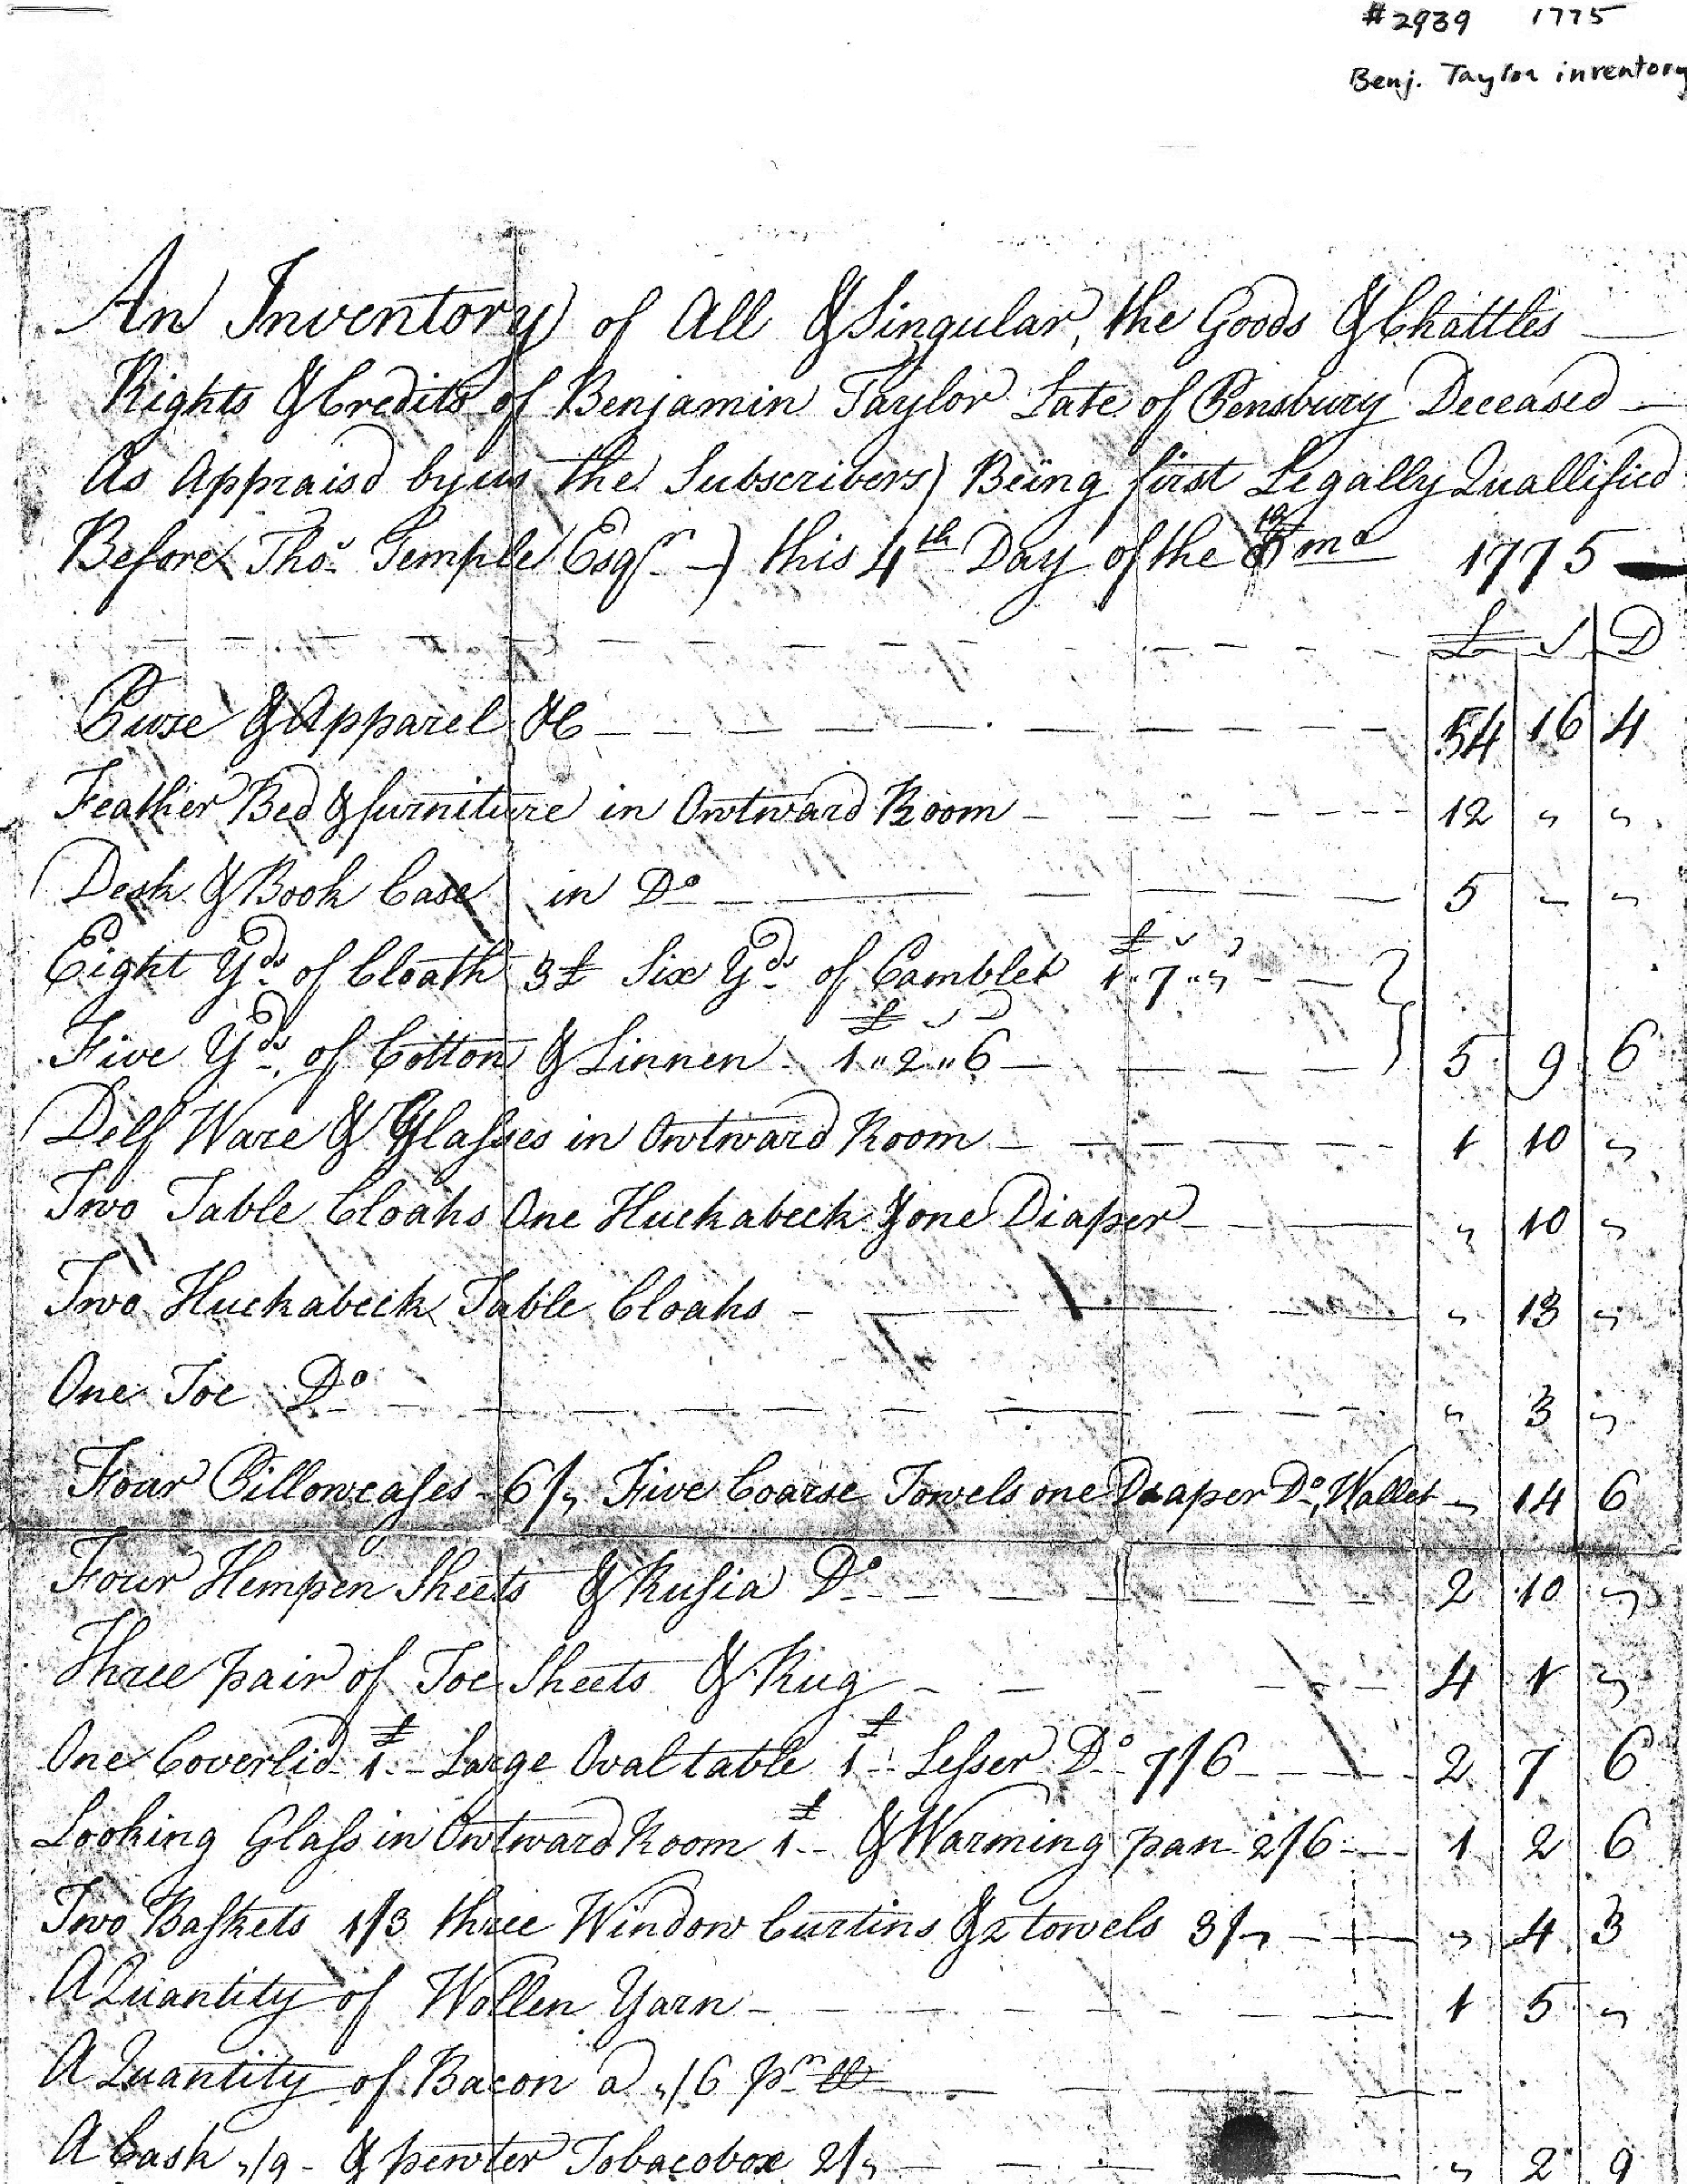 #2939 1775
Benj. Taylor inventory
An Inventory of All & Singular, the Goods & Chattles
Rights & Credits of Benjamin Taylor Late of Pensbury Deceased
As Appraisd by us the Subscribers) Being first Legally Quallified
Before Thos. Temple Esqr. —) this 4th Day of the mo 1775
£ S D
Purse & Apparel &c 54 16 4
Feather Bed & furniture in Owtward Room 12 " "
Desk & Book Case in Do 5 " "
Eight Yds of Cloath 3£ Six Yds of Camblet £ s d 1"7""
Five Yds of Cotton & Linnen £ s d 1"2"6 5 9 6
Delf Ware & Glasses in Owtward Room 1 10 "
Two Table Cloahs One Huckabeck & one Diaper " 10 "
Two Huckabeck Table Cloahs " 13 "
One Toe Do " 3 "
Four Pillowcases 6/" Five Coarse Towels one Diaper Do, Wallet " 14 6
Four Hempen Sheets & Rusia Do 2 10 "
Three pair of Toe Sheets & Rug 4 1 "
One Coverlid £1 Large Oval table £1 Lesser Do 7/6 2 7 6
Looking Glass in Owtward Room £1 & Warming pan 2/6 1 2 6
Two Baskets 1/3 three Window Curtins & 2 towels 3/" " 4 3
A Quantity of Wollen Yarn 1 5 "
A Quantity of Bacon a "/6 pr lb
A Cask "/9 & pewter Tobacobox 2/" " 2 9